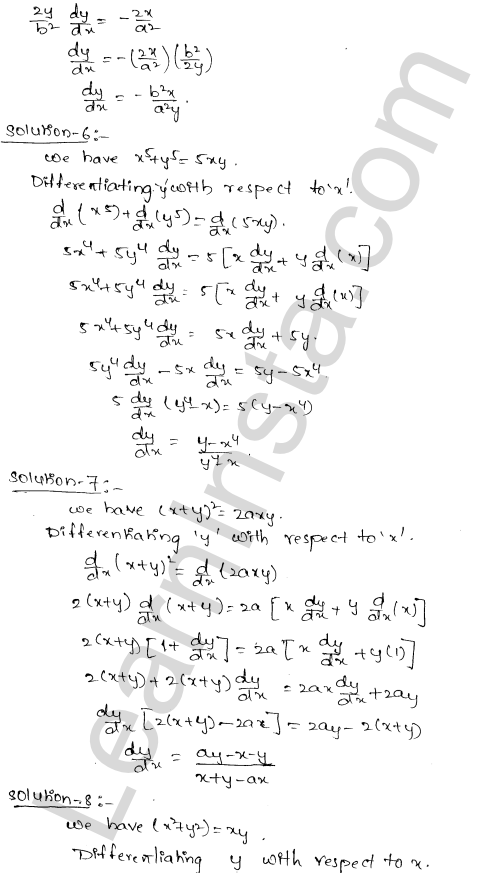 2y/b² dy/dx = -2x/a²
dy/dx = -(2x/a²)(b²/2y)
dy/dx = -b²x/a²y.
Solution-6:-
We have x⁵+y⁵=5xy.
Differentiating 'y' with respect to 'x'.
d/dx (x⁵)+d/dx(y⁵)=d/dx(5xy).
5x⁴+5y⁴ dy/dx = 5[x dy/dx + y d/dx(x)]
5x⁴+5y⁴ dy/dx = 5[x dy/dx + y d/dx(x)]
5x⁴+5y⁴ dy/dx = 5x dy/dx + 5y.
5y⁴ dy/dx - 5x dy/dx = 5y-5x⁴.
5 dy/dx (y⁴-x)=5(y-x⁴)
dy/dx = y-x⁴/y⁴-x.
Solution-7:-
We have (x+y)²=2axy.
Differentiating 'y' with respect to 'x'.
d/dx (x+y)² = d/dx (2axy)
2(x+y) d/dx (x+y)=2a [x dy/dx + y d/dx(x)]
2(x+y)[1+ dy/dx]=2a [x dy/dx +y(1)]
2(x+y)+2(x+y) dy/dx = 2ax dy/dx +2ay
dy/dx [2(x+y)-2ax]=2ay-2(x+y)
dy/dx = ay-x-y/x+y-ax
Solution-8:-
We have (x²+y²)=xy.
Differentiating y with respect to x.
LearnInsta.com